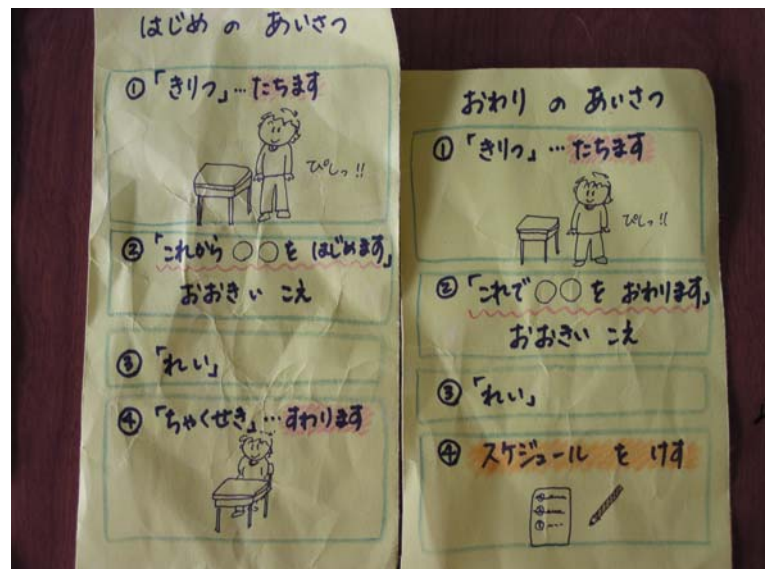 はじめ の あいさつ
①「きりつ」…たちます
ぴしっ!!
②「これから ○○を はじめます」
おおきい こえ
③「れい」
④「ちゃくせき」…すわります
おわり の あいさつ
①「きりつ」…たちます
ぴしっ!!
②「これで ○○ を おわります」
おおきい こえ
③「れい」
④ スケジュール を けす